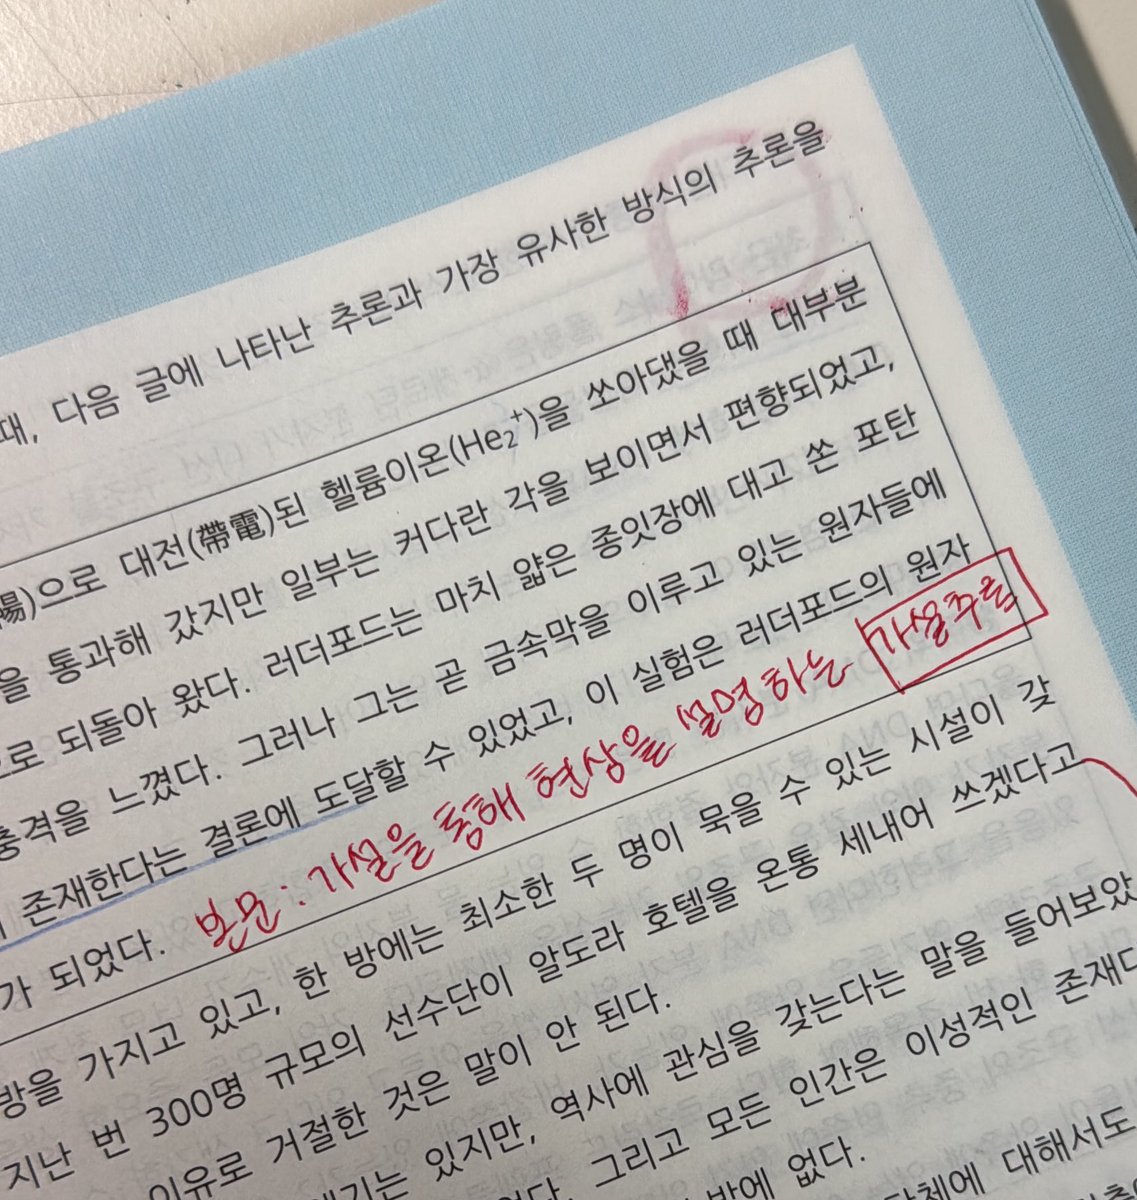 때, 다음 글에 나타난 추론과 가장 유사한 방식의 추론을
陽)으로 대전(帶電)된 헬륨이온(He₂⁺)을 쏘아댔을 때 대부분
을 통과해 갔지만 일부는 커다란 각을 보이면서 편향되었고,
으로 되돌아 왔다. 러더포드는 마치 얇은 종잇장에 대고 쏜 포탄
충격을 느꼈다. 그러나 그는 곧 금속막을 이루고 있는 원자들에
존재한다는 결론에 도달할 수 있었고, 이 실험은 러더포드의 원자
가 되었다. 본문 : 가설을 통해 현상을 설명하는 가설추론
방을 가지고 있고, 한 방에는 최소한 두 명이 묵을 수 있는 시설이 갖
지난 번 300명 규모의 선수단이 알도라 호텔을 온통 세내어 쓰겠다고
이유로 거절한 것은 말이 안 된다.
있지만, 역사에 관심을 갖는다는 말을 들어보았
그리고 모든 인간은 이성적인 존재다
밖에 없다.
대해서도